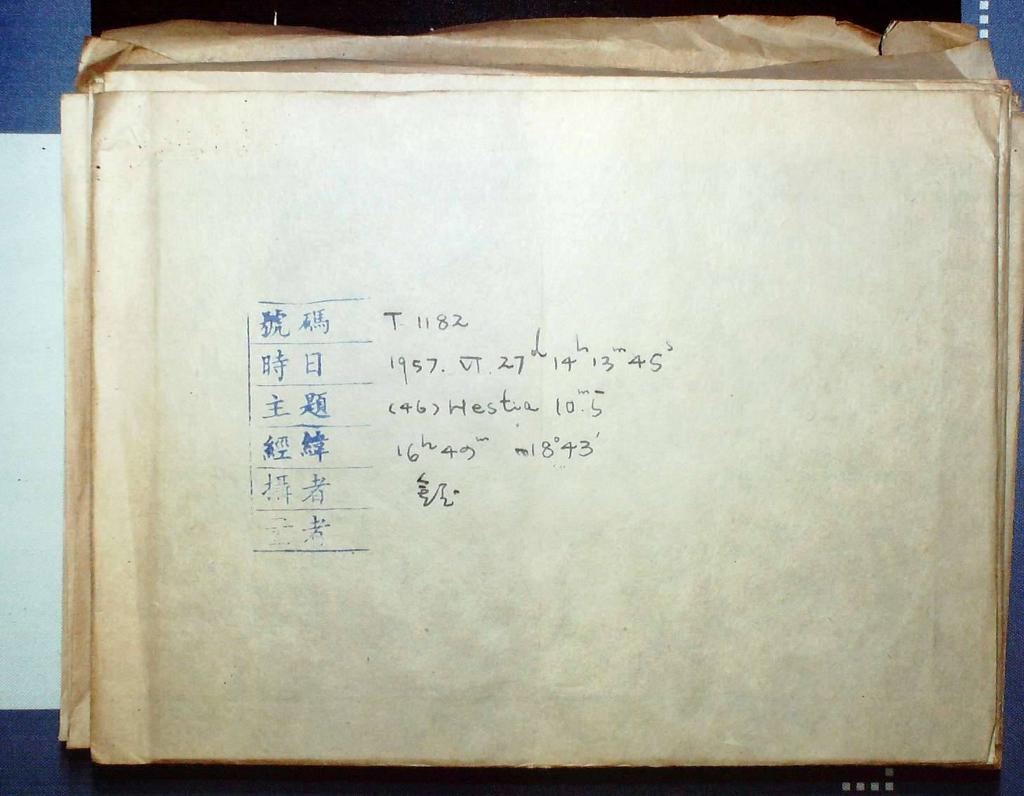 號碼 T. 1182
時日 1957. VI. 27ᵈ 14ʰ 13ᵐ 45ˢ
主題 (46) Hestia 10ᵐ.5
經緯 16ʰ 49ᵐ -18°43'
攝者
者